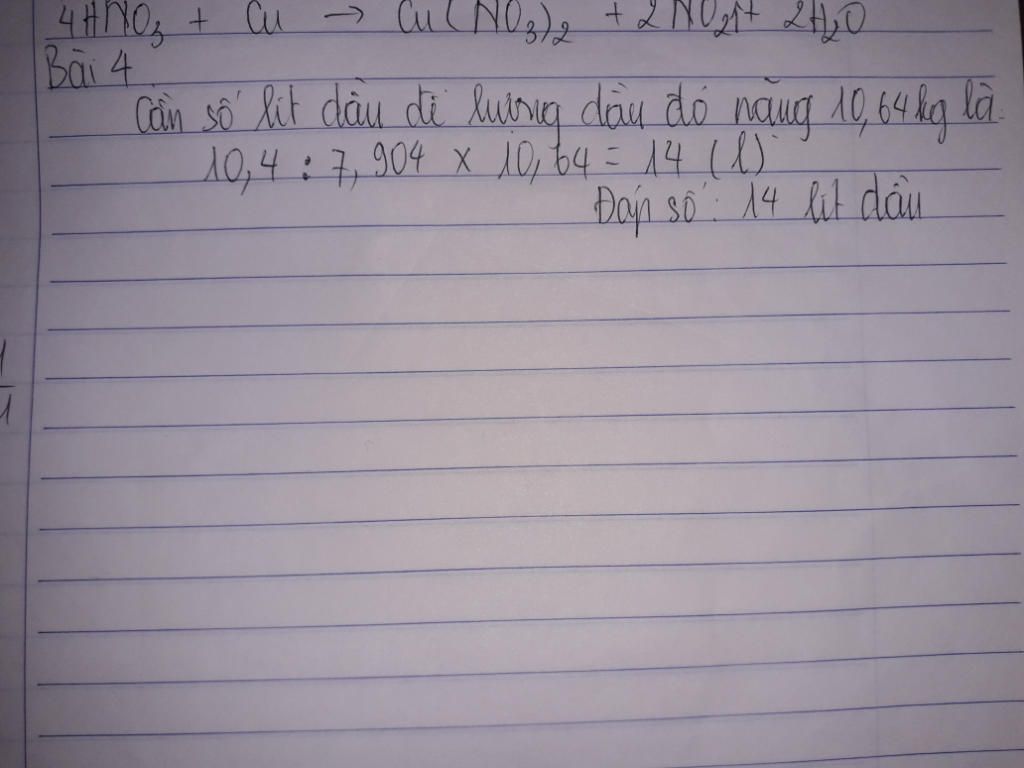 4HNO₃ + Cu → Cu(NO₃)₂ + 2NO₂↑ + 2H₂O
Bài 4
Cần số lít dầu để lượng dầu đó nặng 10,64kg là:
10,4 : 7,904 x 10,64 = 14 (l)
Đáp số: 14 lít dầu